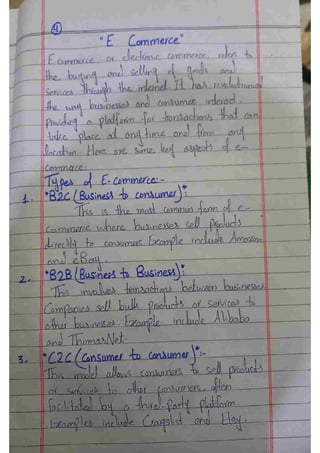 4
"E Commerce"
E commerce or electronic commerce, refers to
the buying and selling of goods and
services through the internet. It has revolutionized
the way businesses and consumer interact,
Providing a platform for transactions that can
take place at any time and from any
location. Here are some key aspects of e-
commerce:
Types of E-commerce:-
1. *B2C (Business to consumer):*
This is the most common form of e-
commerce where businesses sell products
directly to consumers. Example include Amazon
and eBay.
2. *B2B (Business to Business):*
This involves transactions between businesses
Companies sell bulk products or services to
other businesses. Example include Alibaba
and ThomasNet.
3. *C2C (Consumer to consumer)*:-
This model allows consumers to sell products
or services to other consumers, often
facilitated by a third-party platform
Examples include Craigslist and